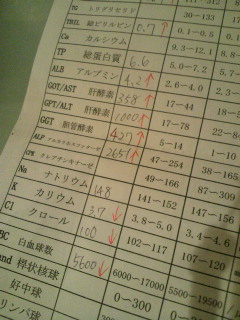 TG トリグリセリド 30-133 31-
TBIL 総ビリルビン 0.7↑ 0.1-0.5 0.1-0.
Ca カルシウム 9.3-12.1 8.
TP 総蛋白質 6.6 5.0-7.2 5.7-
ALB アルブミン 4.2↑ 2.6-4.0 2.3-
GOT/AST 肝酵素 358↑ 17-44 18-
GPT/ALT 肝酵素 1000↑ 17-78 22-
GGT 胆管酵素 427↑ 5-14 1-10
ALP 2651↑ 47-254 38-165
CPK クレアチンキナーゼ 49-166 87-309
Na ナトリウム 148 141-152 147-156
K カリウム 3.7↓ 3.8-5.0 3.4-4.6
Cl クロール 100↓ 102-117 107-120
BC 白血球数 5600↓ 6000-17000 5500-19500
and 桿状核球 0-300
好中球
リンパ球